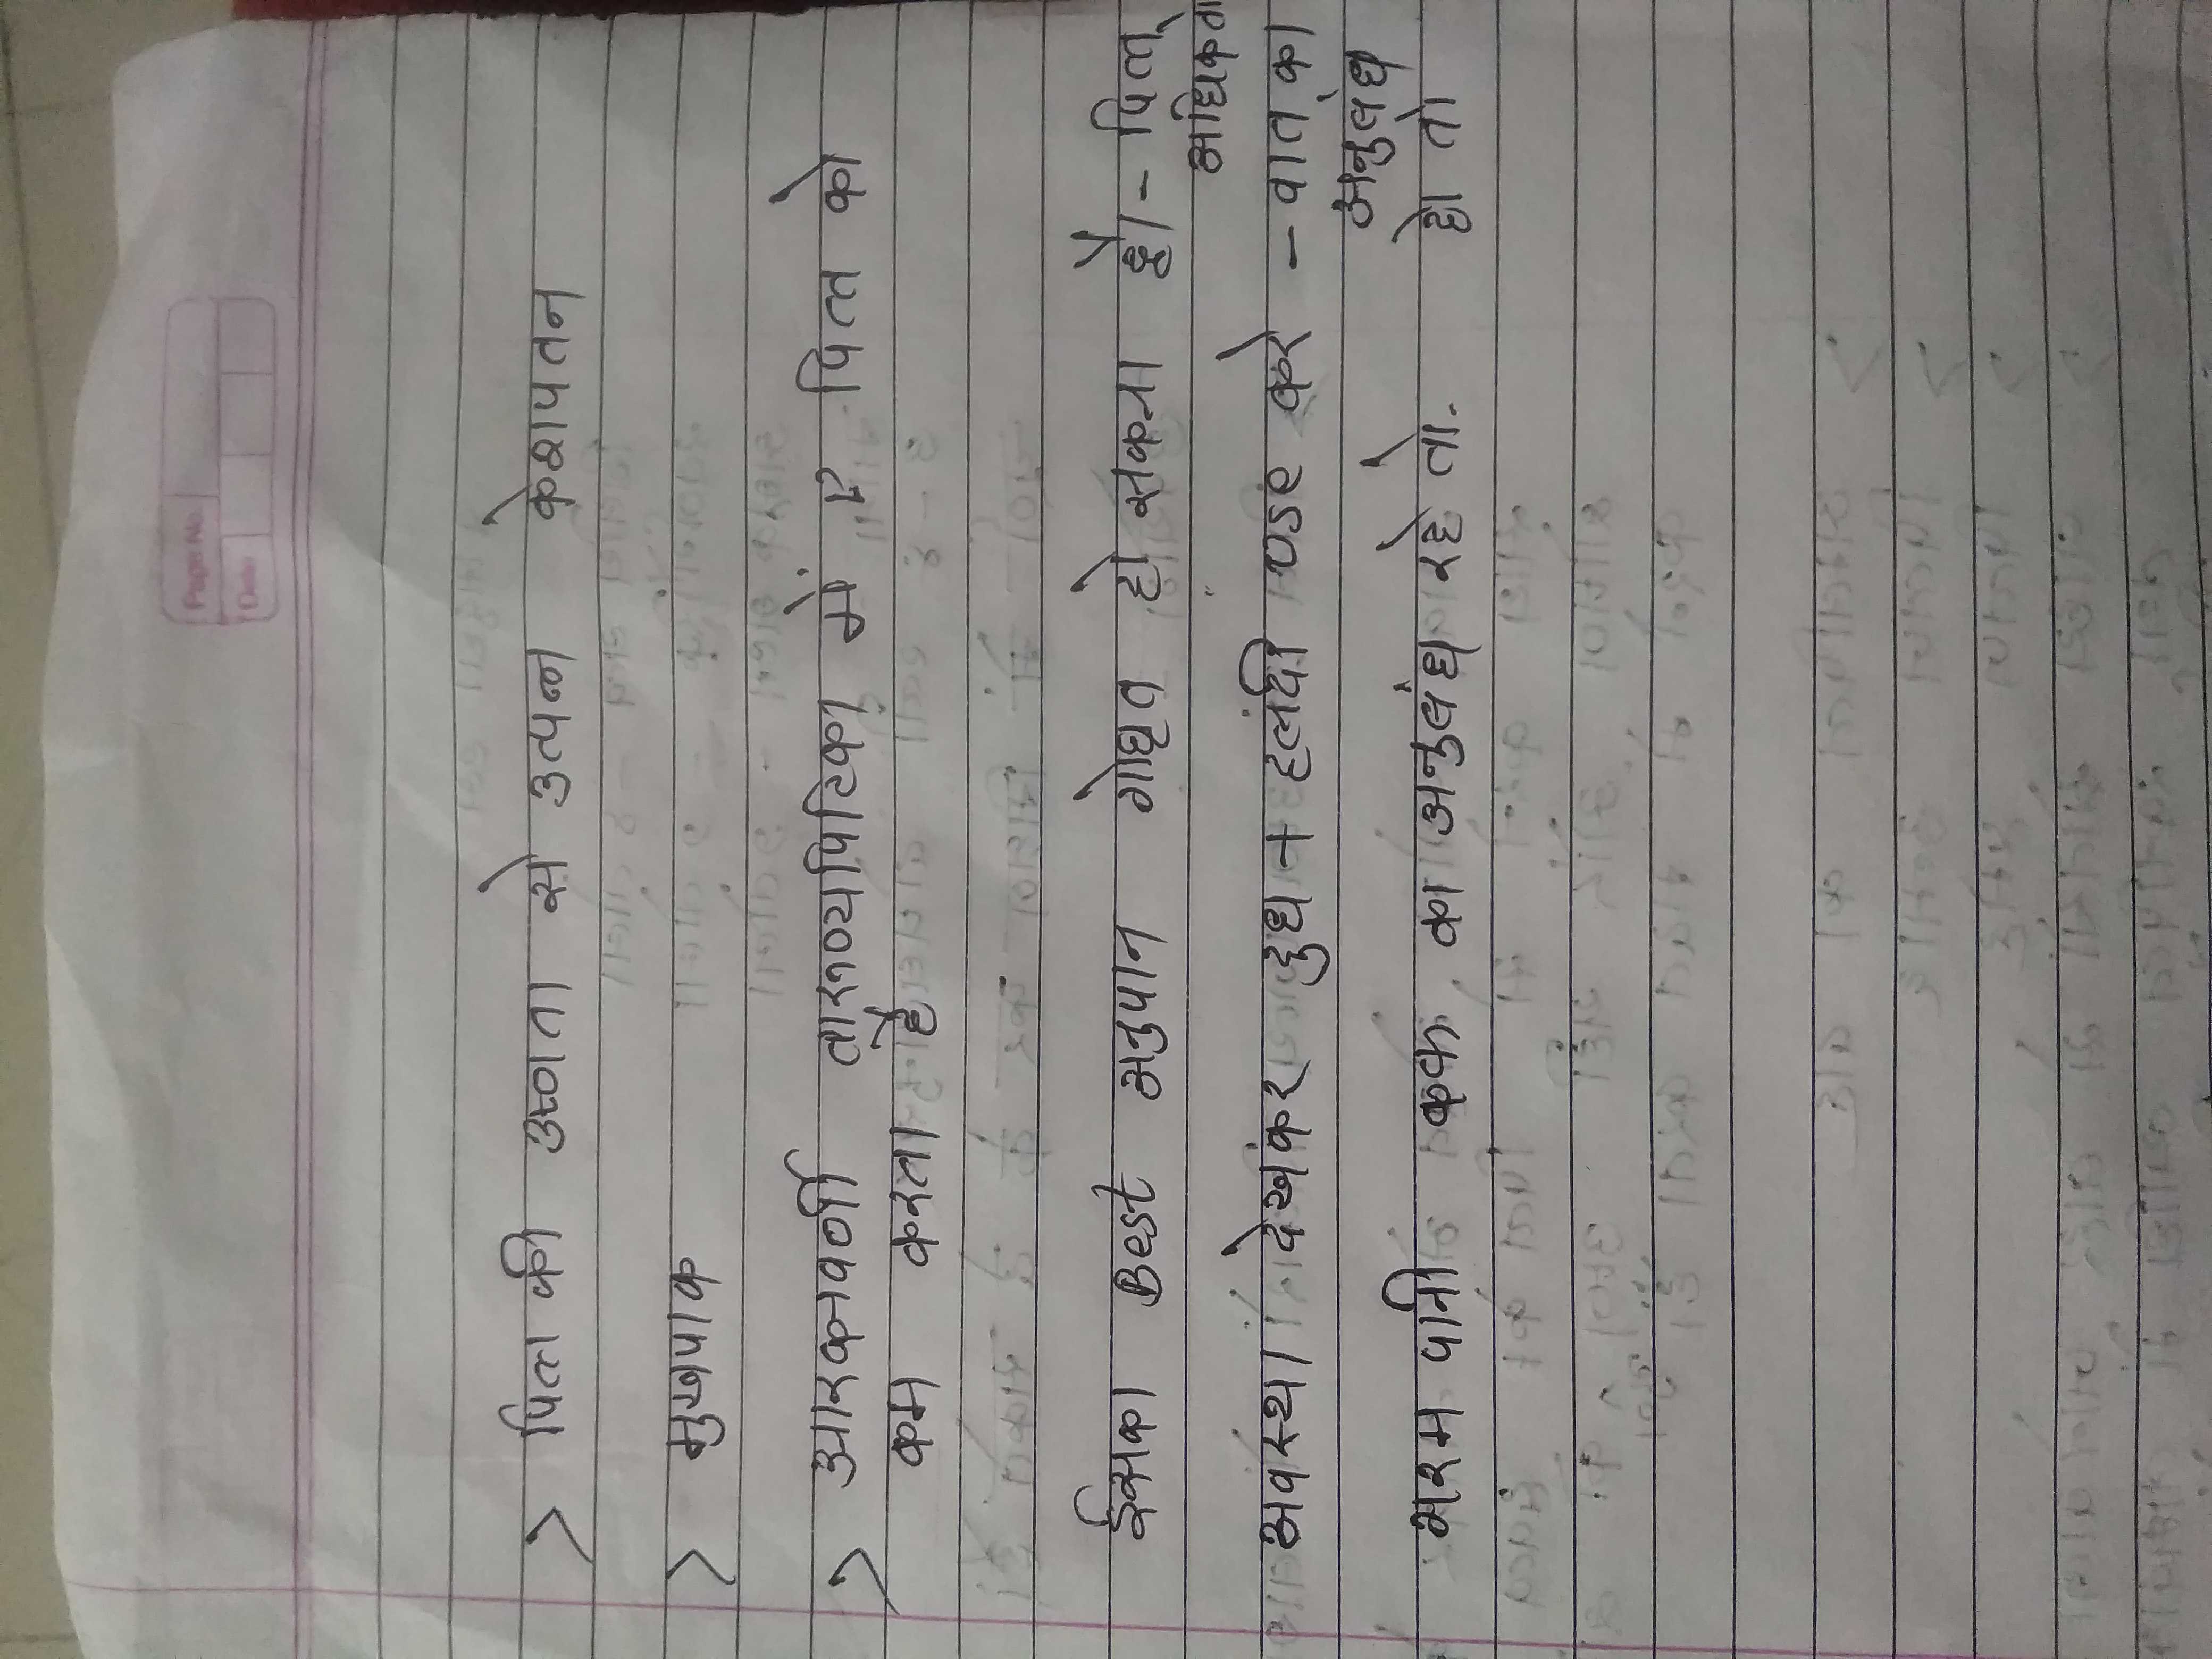 Page No.
Date
> पित्त की उष्णता से उत्पन्न केशपतन
> मुखपाक
> आरक्तवर्णी तारुण्यपिटिका में पित्त को
कम करता है
ईसका Best अनुपान गोघृत हो सकता है। - पित्त
अधिकता
अवस्था देखकर दुध + हलदी करे - वात का
अनुबंध
गरम पानी कफ का अनुबंध रहे तो. हो तो